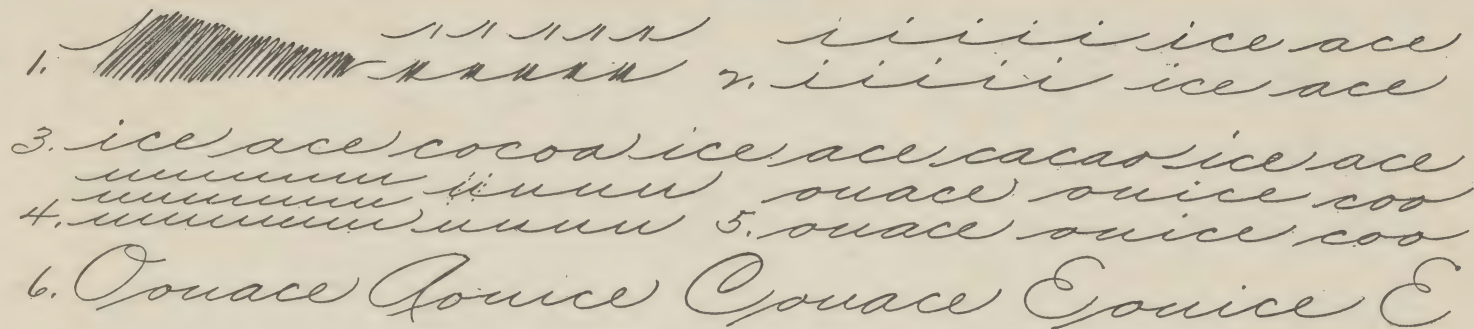 i i i i i ice ace
1. 2. i i i i i ice ace
3. ice ace cocoa ice ace cacao ice ace
uuuuuu u u u u ouace ouice coo
uuuuuu
4. uuuuuuu u u u u 5. ouace ouice coo
6. Oouace Aouice Couace Eouice E